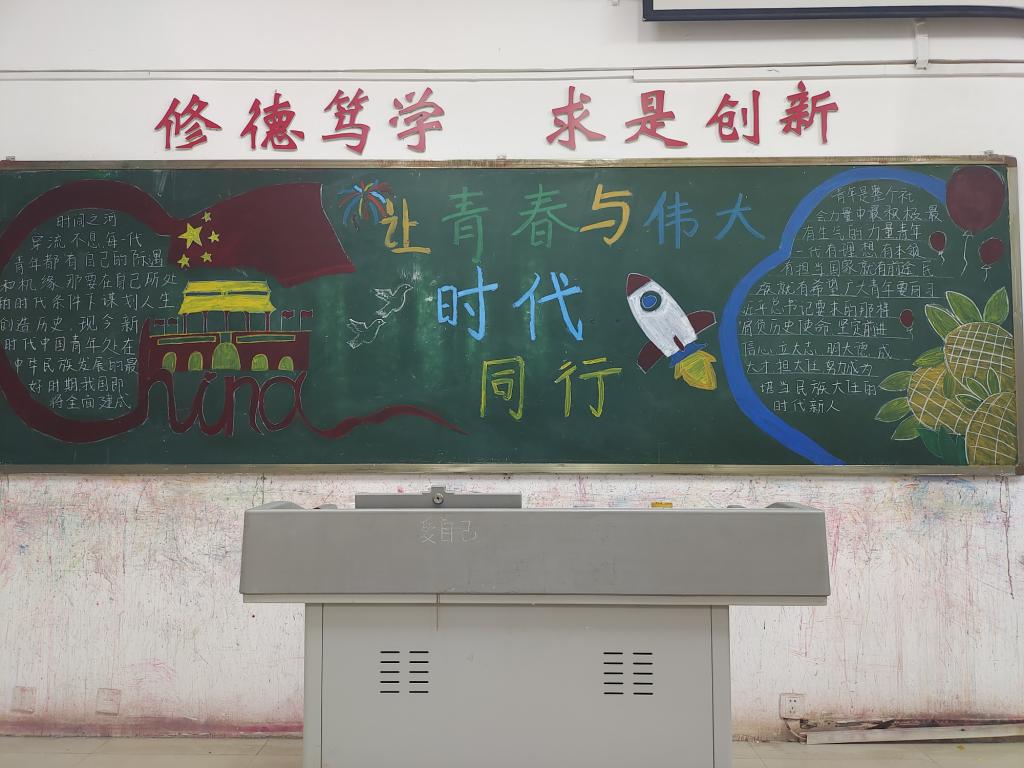 修德笃学 求是创新
让青春与伟大
时代
同行
时间之河
穿流不息,每一代
青年都有自己的际遇
和机缘,那要在自己所处
的时代条件下谋划人生
创造历史.现今新
时代中国青年处在
中华民族发展的最
好时期我国即
将全面建成
China
青年是整个社
会力量中最积极、最
有生气的力量青年
一代有理想有本领
有担当国家就有前途民
族就有希望广大青年要自习
近平总书记要求的那样
肩负历史使命坚定前进
信心,立大志,明大德,成
大才担大任努力成为
堪当民族大任的
时代新人
爱自己